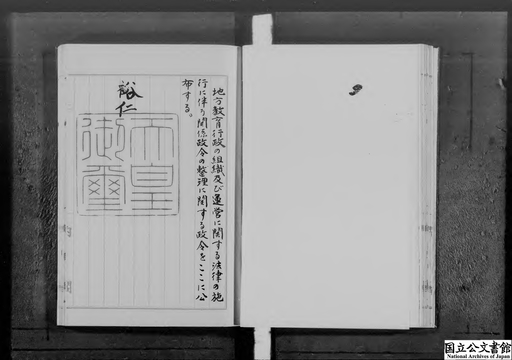 地方教育行政の組織及び運営に関する法律の施
行に伴う関係政令の整理に関する政令をここに公
布する。
裕仁
天皇
御璽
9
国立公文書館
National Archives of Japan